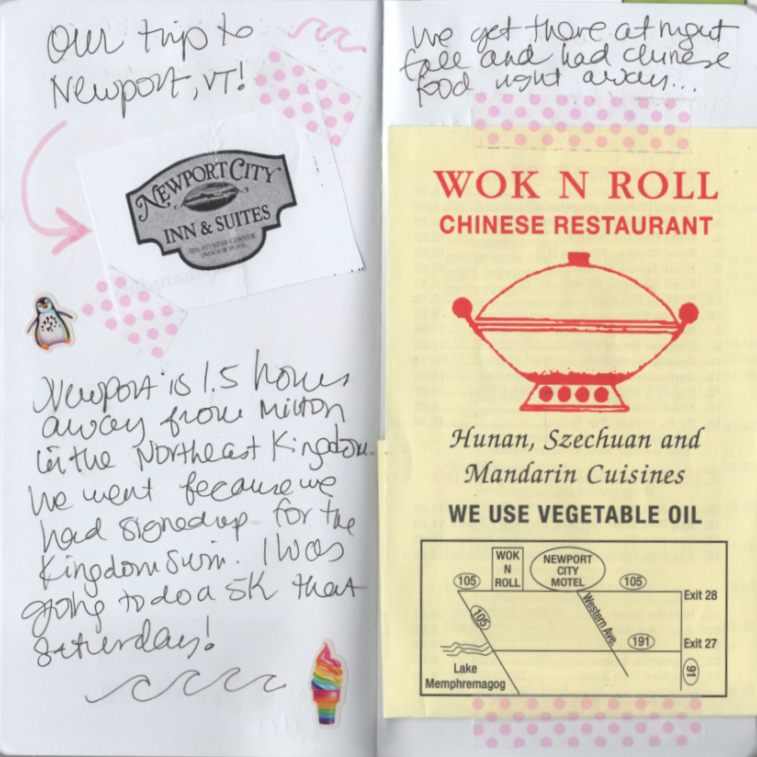 Our trip to
Newport, VT!
NEWPORT CITY
INN & SUITES
INDOOR POOL
Newport is 1.5 hours
away from Milton
in the Northeast Kingdom.
We went because we
had signed up for the
Kingdom Swim. I was
going to do a 5K that
Saturday!
We get there at night
fall and had chinese
food right away...
WOK N ROLL
CHINESE RESTAURANT
Hunan, Szechuan and
Mandarin Cuisines
WE USE VEGETABLE OIL
WOK
N
ROLL
NEWPORT
CITY
MOTEL
105
105
Exit 28
105
Western Ave.
191
Exit 27
91
Lake
Memphremagog